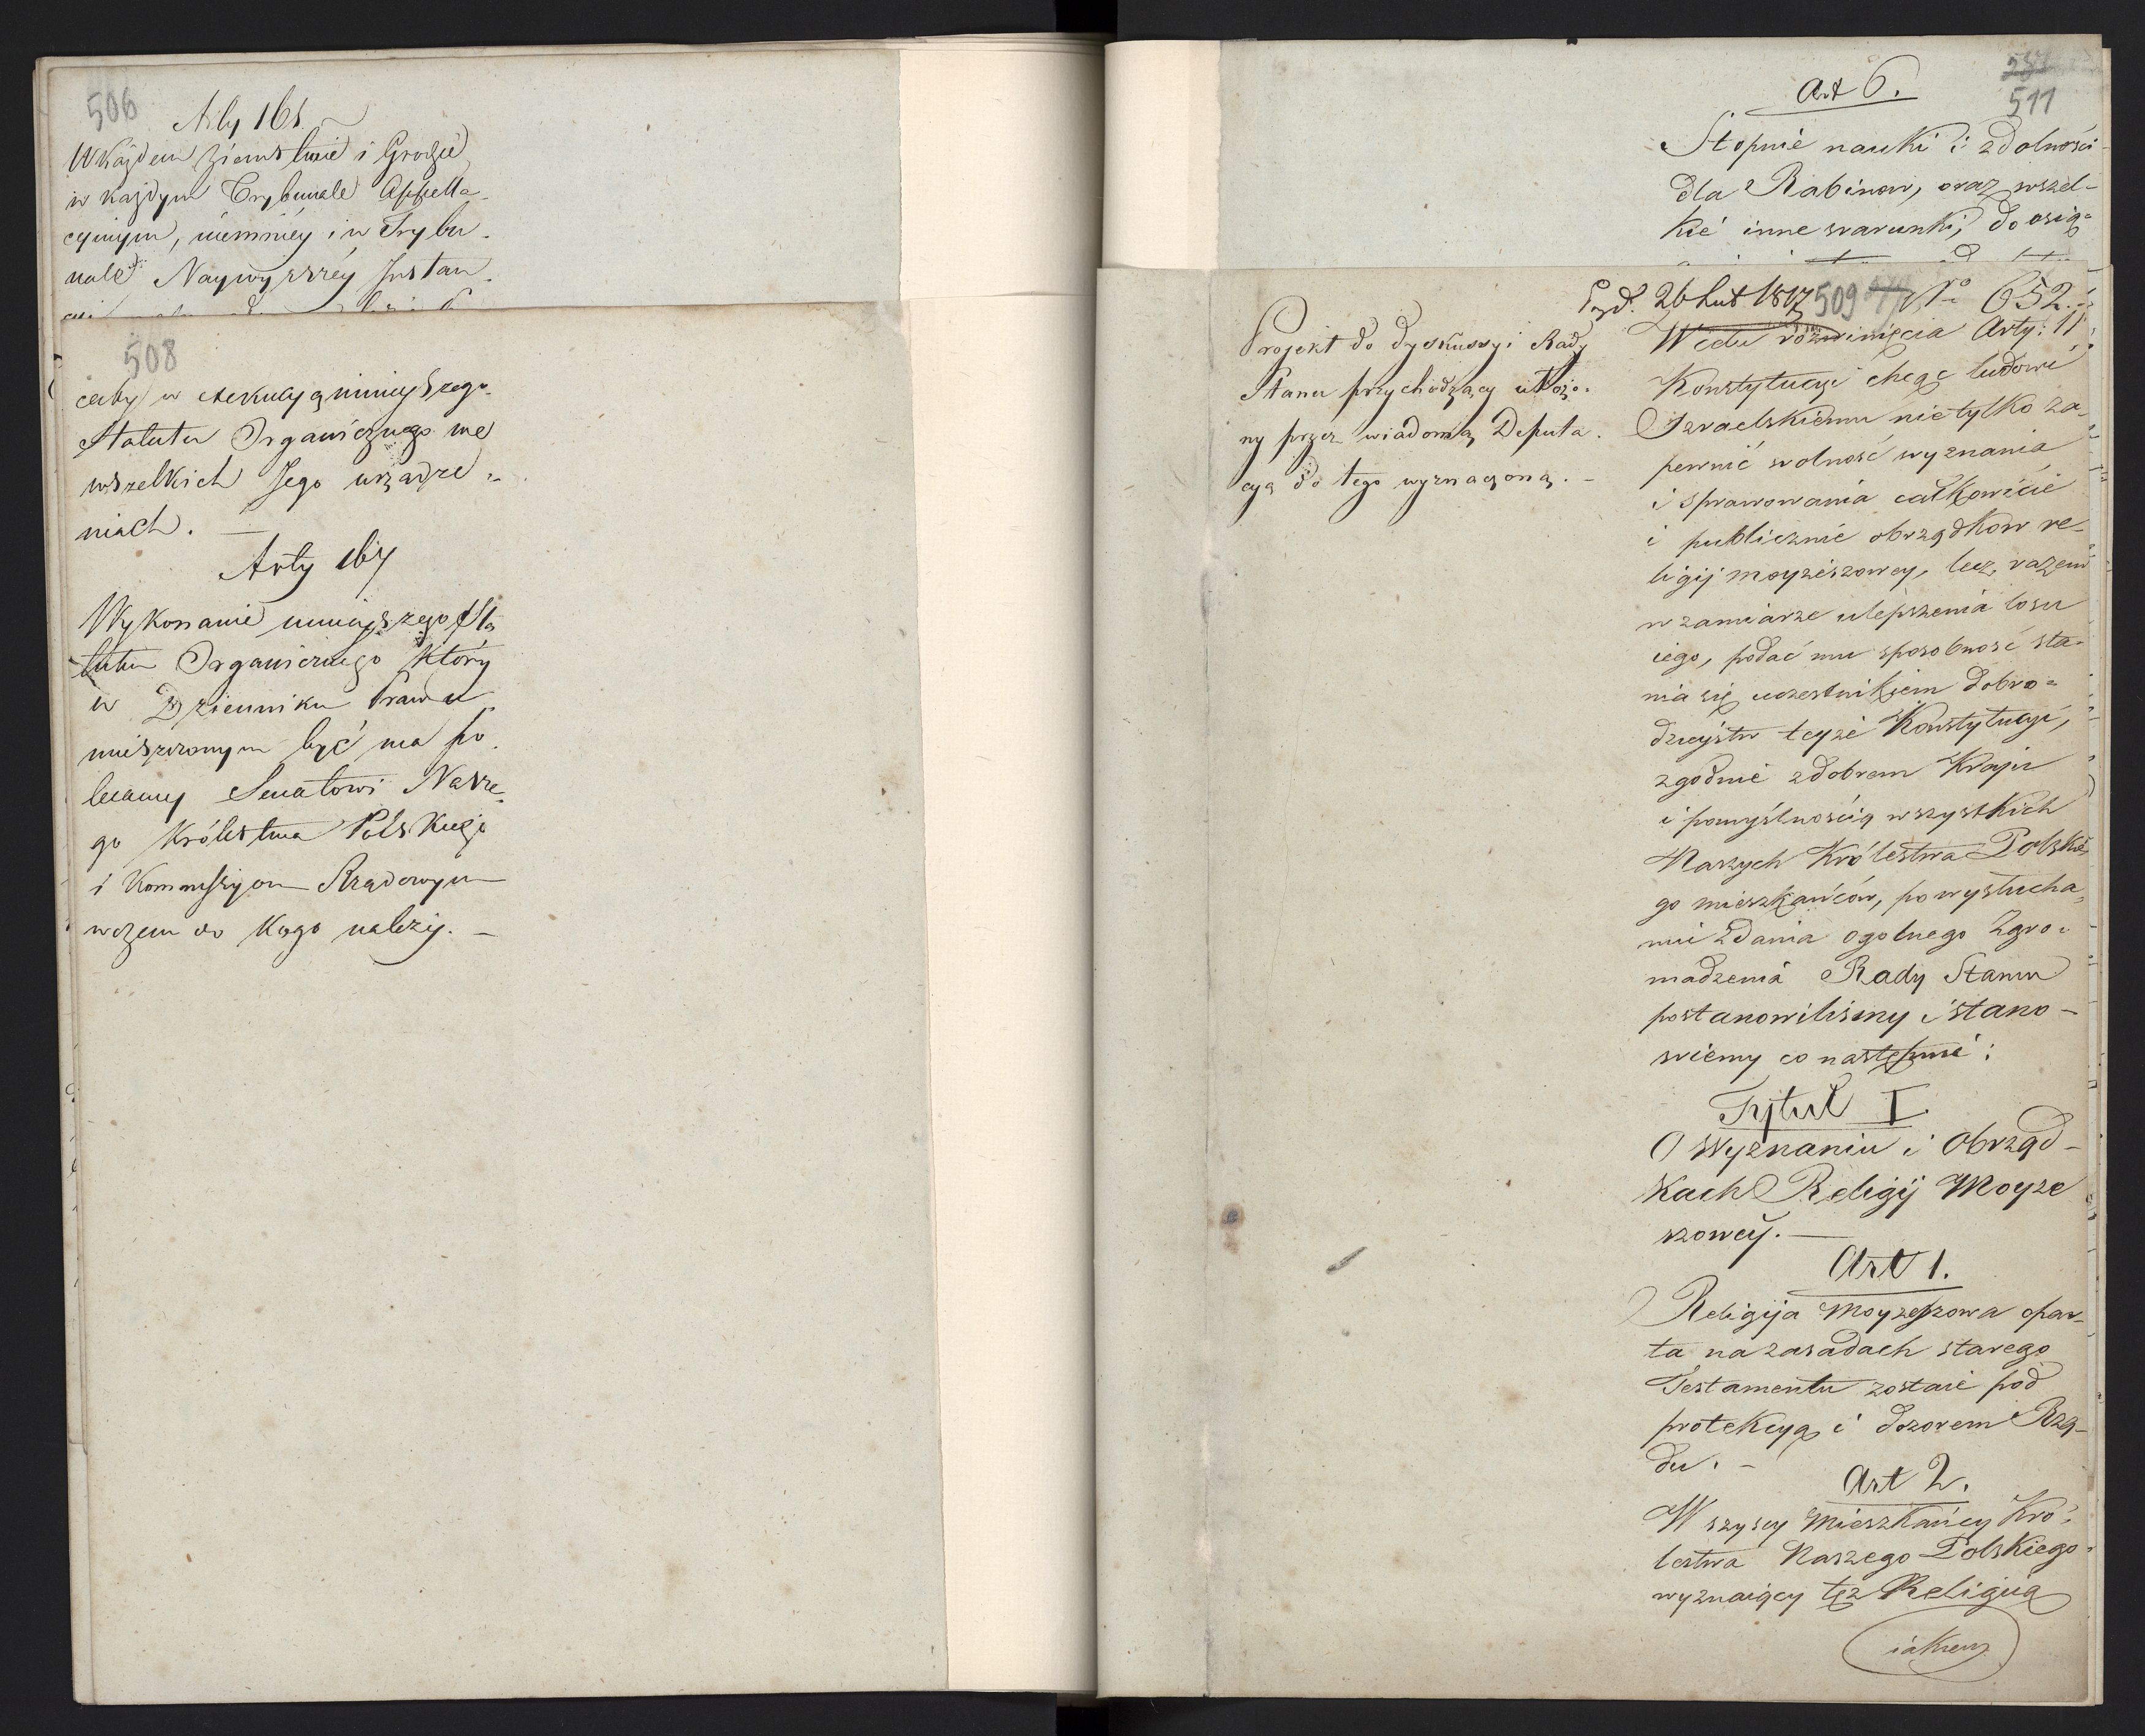 506
Arty 161.
W każdem Ziemstwie i Grodzie
w każdym Trybunale Appella-
cyinym, niemniéy i w Trybu-
nale Naywyższéy Instan-
508
ciby w exekucyą ninieyszego
Statutu Organicznego we
wszelkich Jego urządze-
niach. —
Arty 164
Wykonanie ninieyszego Sta
tutu Organicznego który
w Dzienniku Praw u
mieszczonym być ma po-
lecamy Senatowi Nasze-
go Królestwa Polskiego
i Kommissyom Rządowym
w czem do kogo należy. —
Art 6.
511
Stopnie nauki i zdolności
dla Rabinow, oraz wszel-
kie inne warunki, do osią-
26 Lut 1817 509 No 652.
Projekt do dyskussyi Rady
Stanu przychodzący ułożo-
ny przez wiadomą Deputa-
cyą do tego wyznaczoną. —
W celu rozwinięcia Arty: 11
Konstytucyi chcąc ludowi
Izraelskiemu nietylko za-
pewnić wolność wyznania
i sprawowania całkowicie
i publicznie obrządkow re-
ligij moyżeszowey, lecz razem
w zamiarze ulepszenia losu
iego, podać mu sposobność sta-
nia się uczestnikiem dobro-
dzieystw teyże Konstytucyi,
zgodnie z dobrem Kraju
i pomyślnością wszystkich
Naszych Królestwa Polskie
go mieszkańców, po wysłucha-
niu zdania ogolnego Zgro-
madzenia Rady Stanu
postanowiliśmy i stano-
wiemy co następuie:
Tytuł I.
O Wyznaniu i Obrząd-
kach Religij Moyże
szowey. —
Art 1.
Religija Moyżeszowa opar-
ta na zasadach starego
Testamentu zostaie pod
protekcyą i dozorem Rzą-
du. —
Art 2.
Wszyscy Mieszkańcy Kró-
lestwa Naszego Polskiego
wyznaiący tęż Religiią